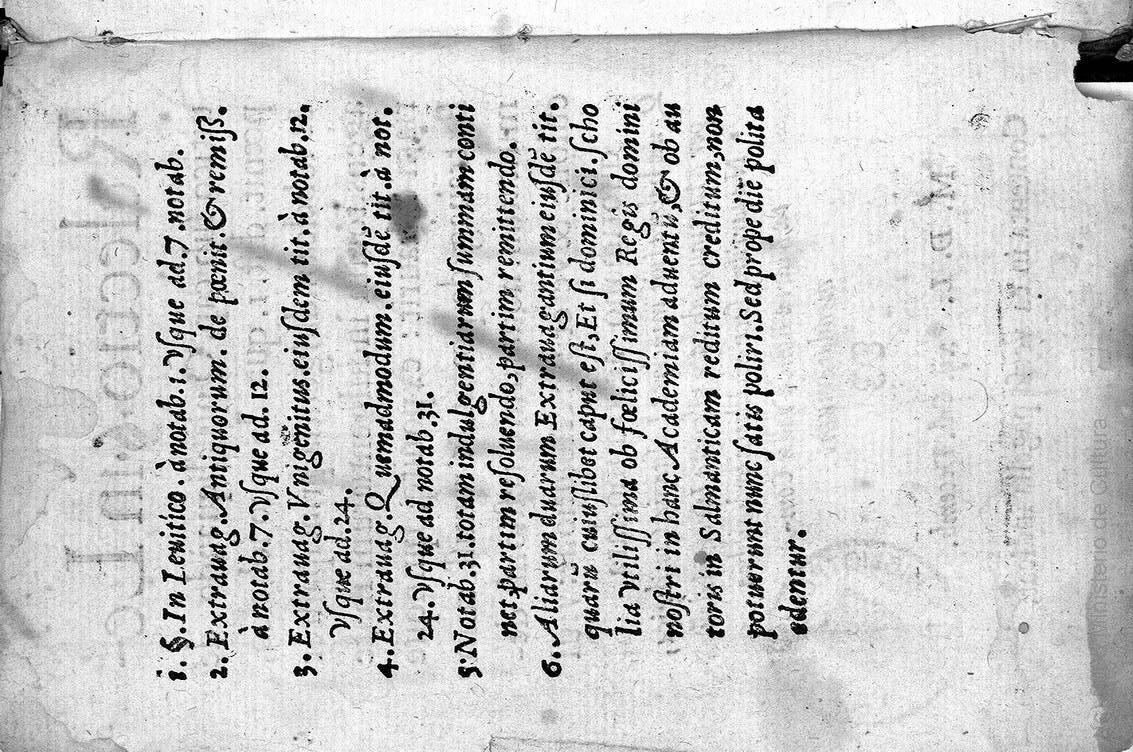 1. §. In Leuitico. à notab. 1. vſque ad. 7. notab.
2. Extrauag. Antiquorum. de pœnit. & remiß.
à notab. 7. vſque ad. 12.
3. Extrauag. Vnigenitus. eiuſdem tit. à notab. 12.
vſque ad. 24.
4. Extrauag. Quemadmodum. eiuſdē tit. à not.
24. vſque ad notab. 31.
5. Notab. 31. totam indulgentiarum ſummam conti
net, partim reſoluendo, partim remittendo.
6. Aliarum duarum Extrauagantium eiuſdē tit.
quarū cuiuſlibet caput eſt, Et ſi dominici. ſcho
lia vtiliſſima ob fœliciſſimum Regis domini
noſtri in hanc Academiam aduentū, & ob au
toris in Salmanticam reditum creditum, non
potuerunt nunc ſatis poliri. Sed prope diē polita
edentur.
Ministerio de Cultura